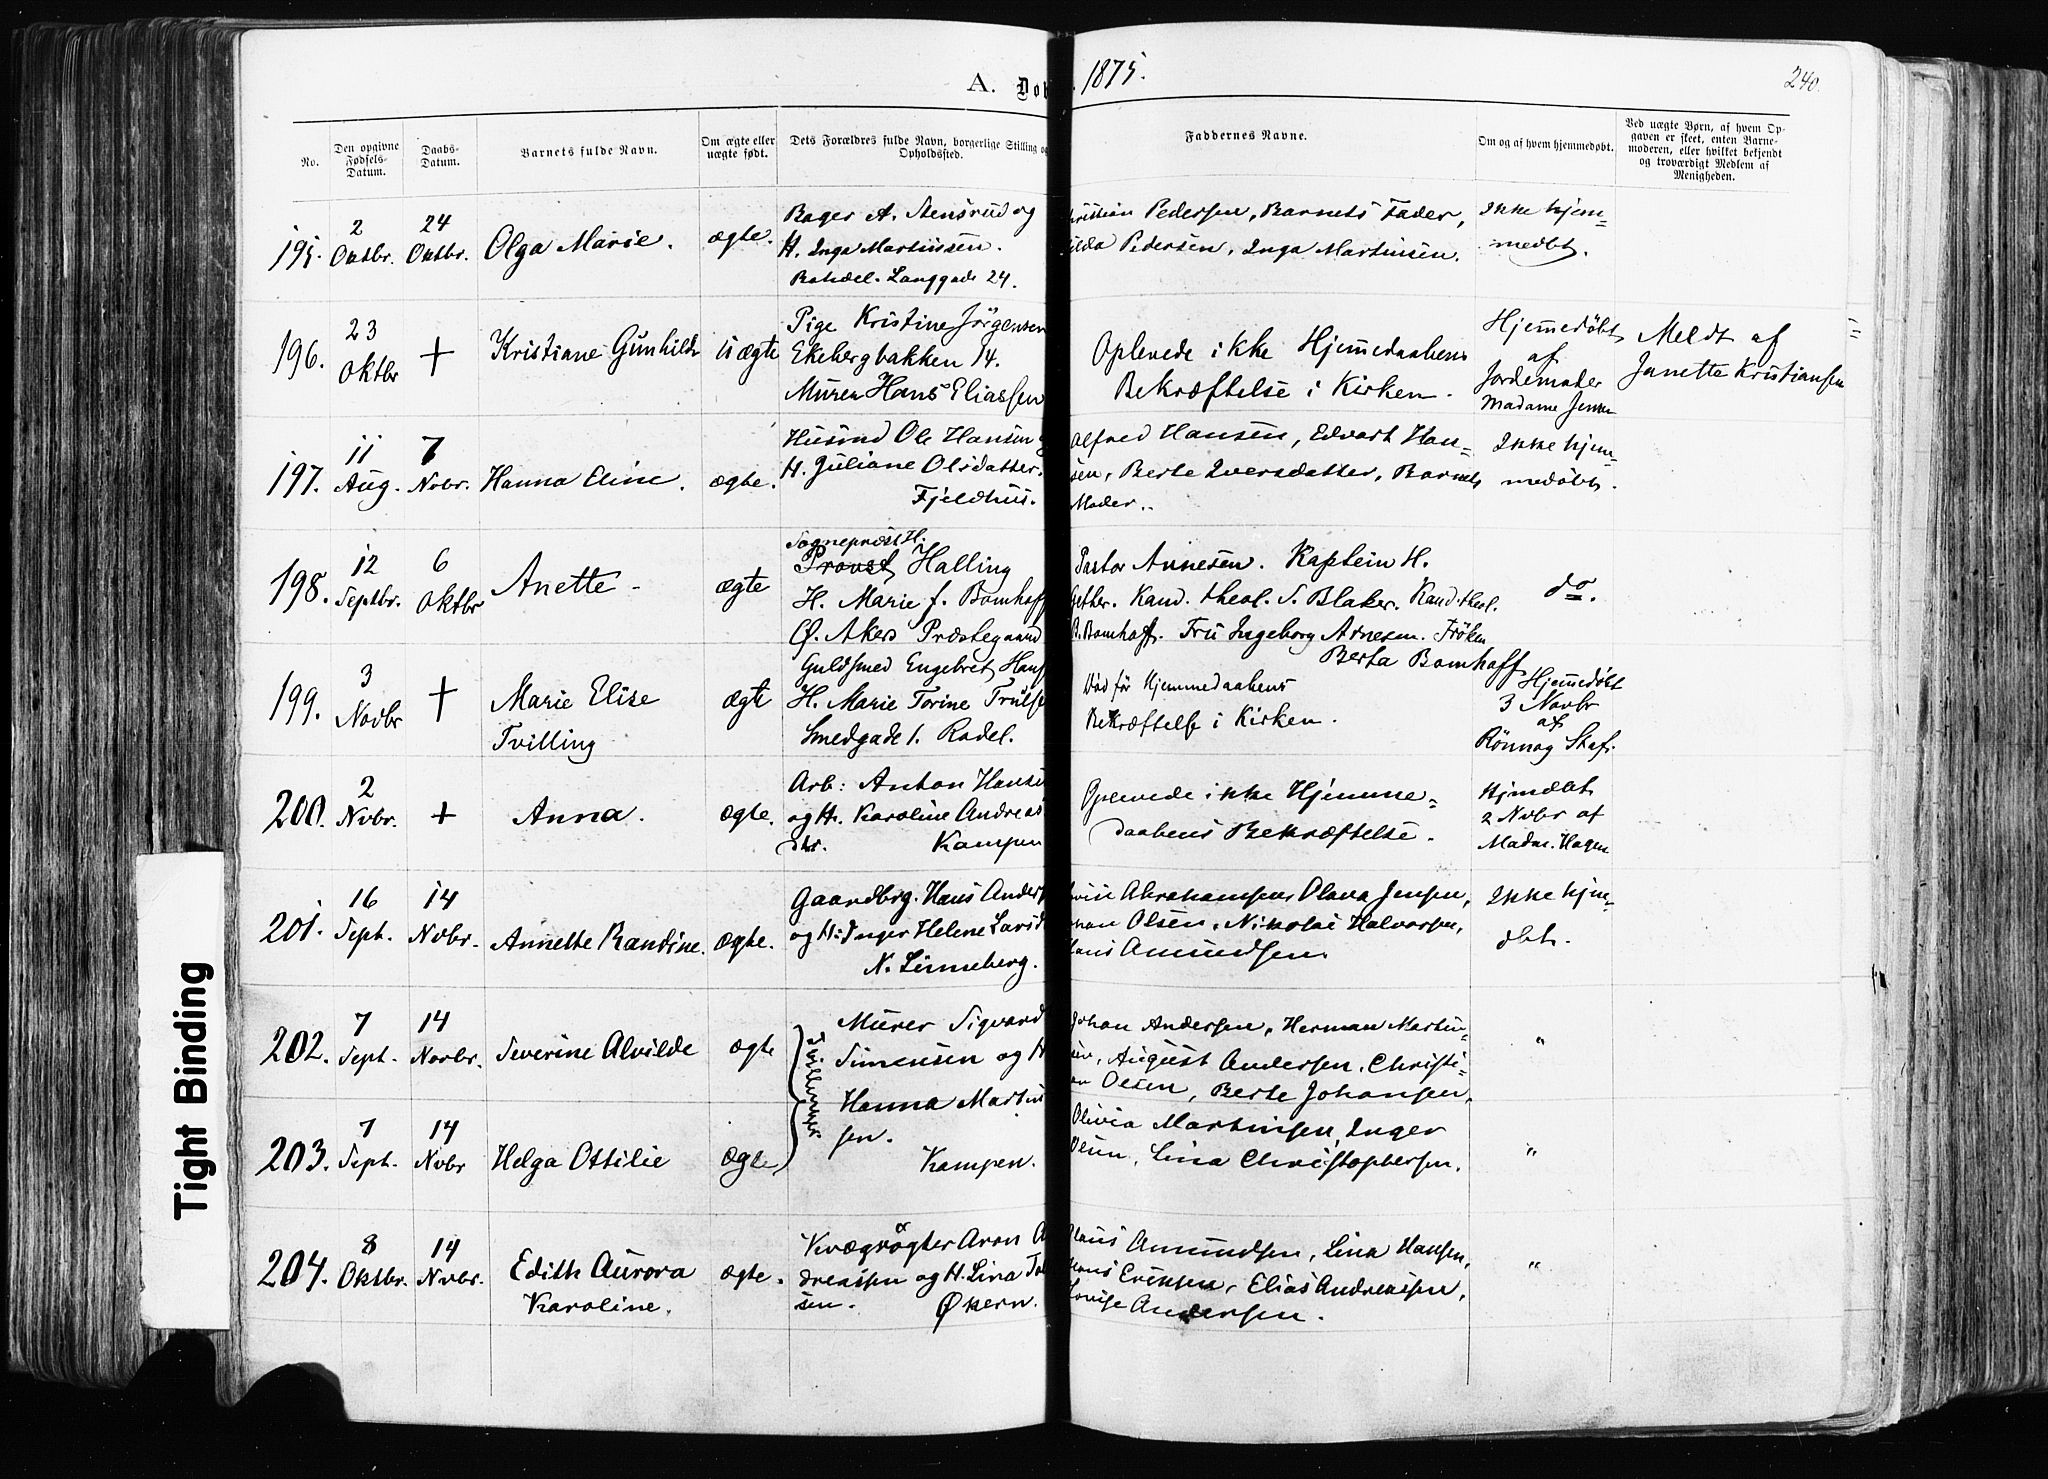 A. Døb
1875.
240.
No.
Den opgivne Fødsels-Datum.
Daabs-Datum.
Barnets fulde Navn.
Om ægte eller uægte født.
Dets Forældres fulde Navn, borgerlige Stilling og Opholdssted.
Faddernes Navne.
Om og af hvem hjemmedøbt.
Ved uægte Børn, af hvem Op-
gaven er skeet, enten Barne-
moderen, eller hvilket bekjendt
og troværdigt Medlem af
Menigheden.
195. 2 Oktbr. 24 Oktbr. Olga Marie. ægte.
Bager A. Stensrud og
H. Inga Martinsen.
Langgade 24.
Pedersen, Barnets Fader,
Pedersen, Inga Martinsen.
Ikke hjem=
medbt.
196. 23 Oktbr + Kristiane Gunhilde Uægte
Pige Kristine Jørgensen
Ekebergbakken 14.
Murer Hans Eliassen
Oplevede ikke Hjemmedaabens
Bekræftelse i Kirken.
Hjemmedøbt
af
Jordemoder
Madame Jensen
Meldt af
Janette Kristiansen
197. 11 Aug. 7 Nvbr. Hanna Eline. ægte.
Husmd Ole Hansen
H. Juliane Olsdatter.
Fjeldhus.
Alfred Hansen, Edvart Han=
sen, Berte Iversdatter, Barnets
Moder.
Ikke hjem=
medøbt.
198. 12 Septbr. 6 Oktbr Anette ægte
Sognepræst H.
Provst Halling
H. Marie f. Bomhoff
Ø. Akers Præstegaard
Pastor Arnesen. Kaptein H.
Kand. theol. S. Blaker. Kand. theol.
B. Bomhoff. Fru Ingeborg Arnesen. Frøken
Berta Bomhoff
do.
199. 3 Novbr + Marie Elise ægte
Tvilling
Guldsmed Engebret Hans
H. Marie Torine Truls
Smedgade 1. Rodel.
Død før Hjemmedaabens
Bekræftelse i Kirken.
Hjemmedøbt
3 Novbr
af
Rønnog
200. 2 Nvbr. + Anna. ægte.
Arb: Anton Hanse
og H. Karoline Andreas
dtr. Kampen
Oplevede ikke Hjemme=
daabens Bekræftelse.
Hjmdbt
2 Nvbr af
Madm. Hagen
201. 16 Sept. 14 Nvbr. Annette Randine. ægte.
Gaardbrg. Hans Anders
og H: Inger Helene Larsd
N. Linneberg.
Abrahamsen, Olava Jensen,
Olsen, Nikolai Halvorsen,
Amundsen.
Ikke hjm=
dbt.
202. 7 Sept. 14 Novbr. Severine Alvilde ægte
Tvillinger
Murer Sigvard
Simensen og H
Hanna Martin
sen.
Kampen.
Johan Andersen, Herman Martin=
sen, August Andersen, Christi=
an Olsen, Berte Johansen,
"
203. 7 Sept. 14 Nvbr Helga Ottilie ægte
Olivia Martinsen, Inger
Olsen, Lina Christophersen.
"
204. 8 Oktbr. 14 Nvbr. Edith Aurora ægte.
Karoline.
Kvægrøgter Aron A
dreassen og H. Lina
sen. Økern.
Amundsen, Lina Hansen,
Hans Eriksen, Elias Andreasen,
Lovise Andersen.
"
Tight Binding